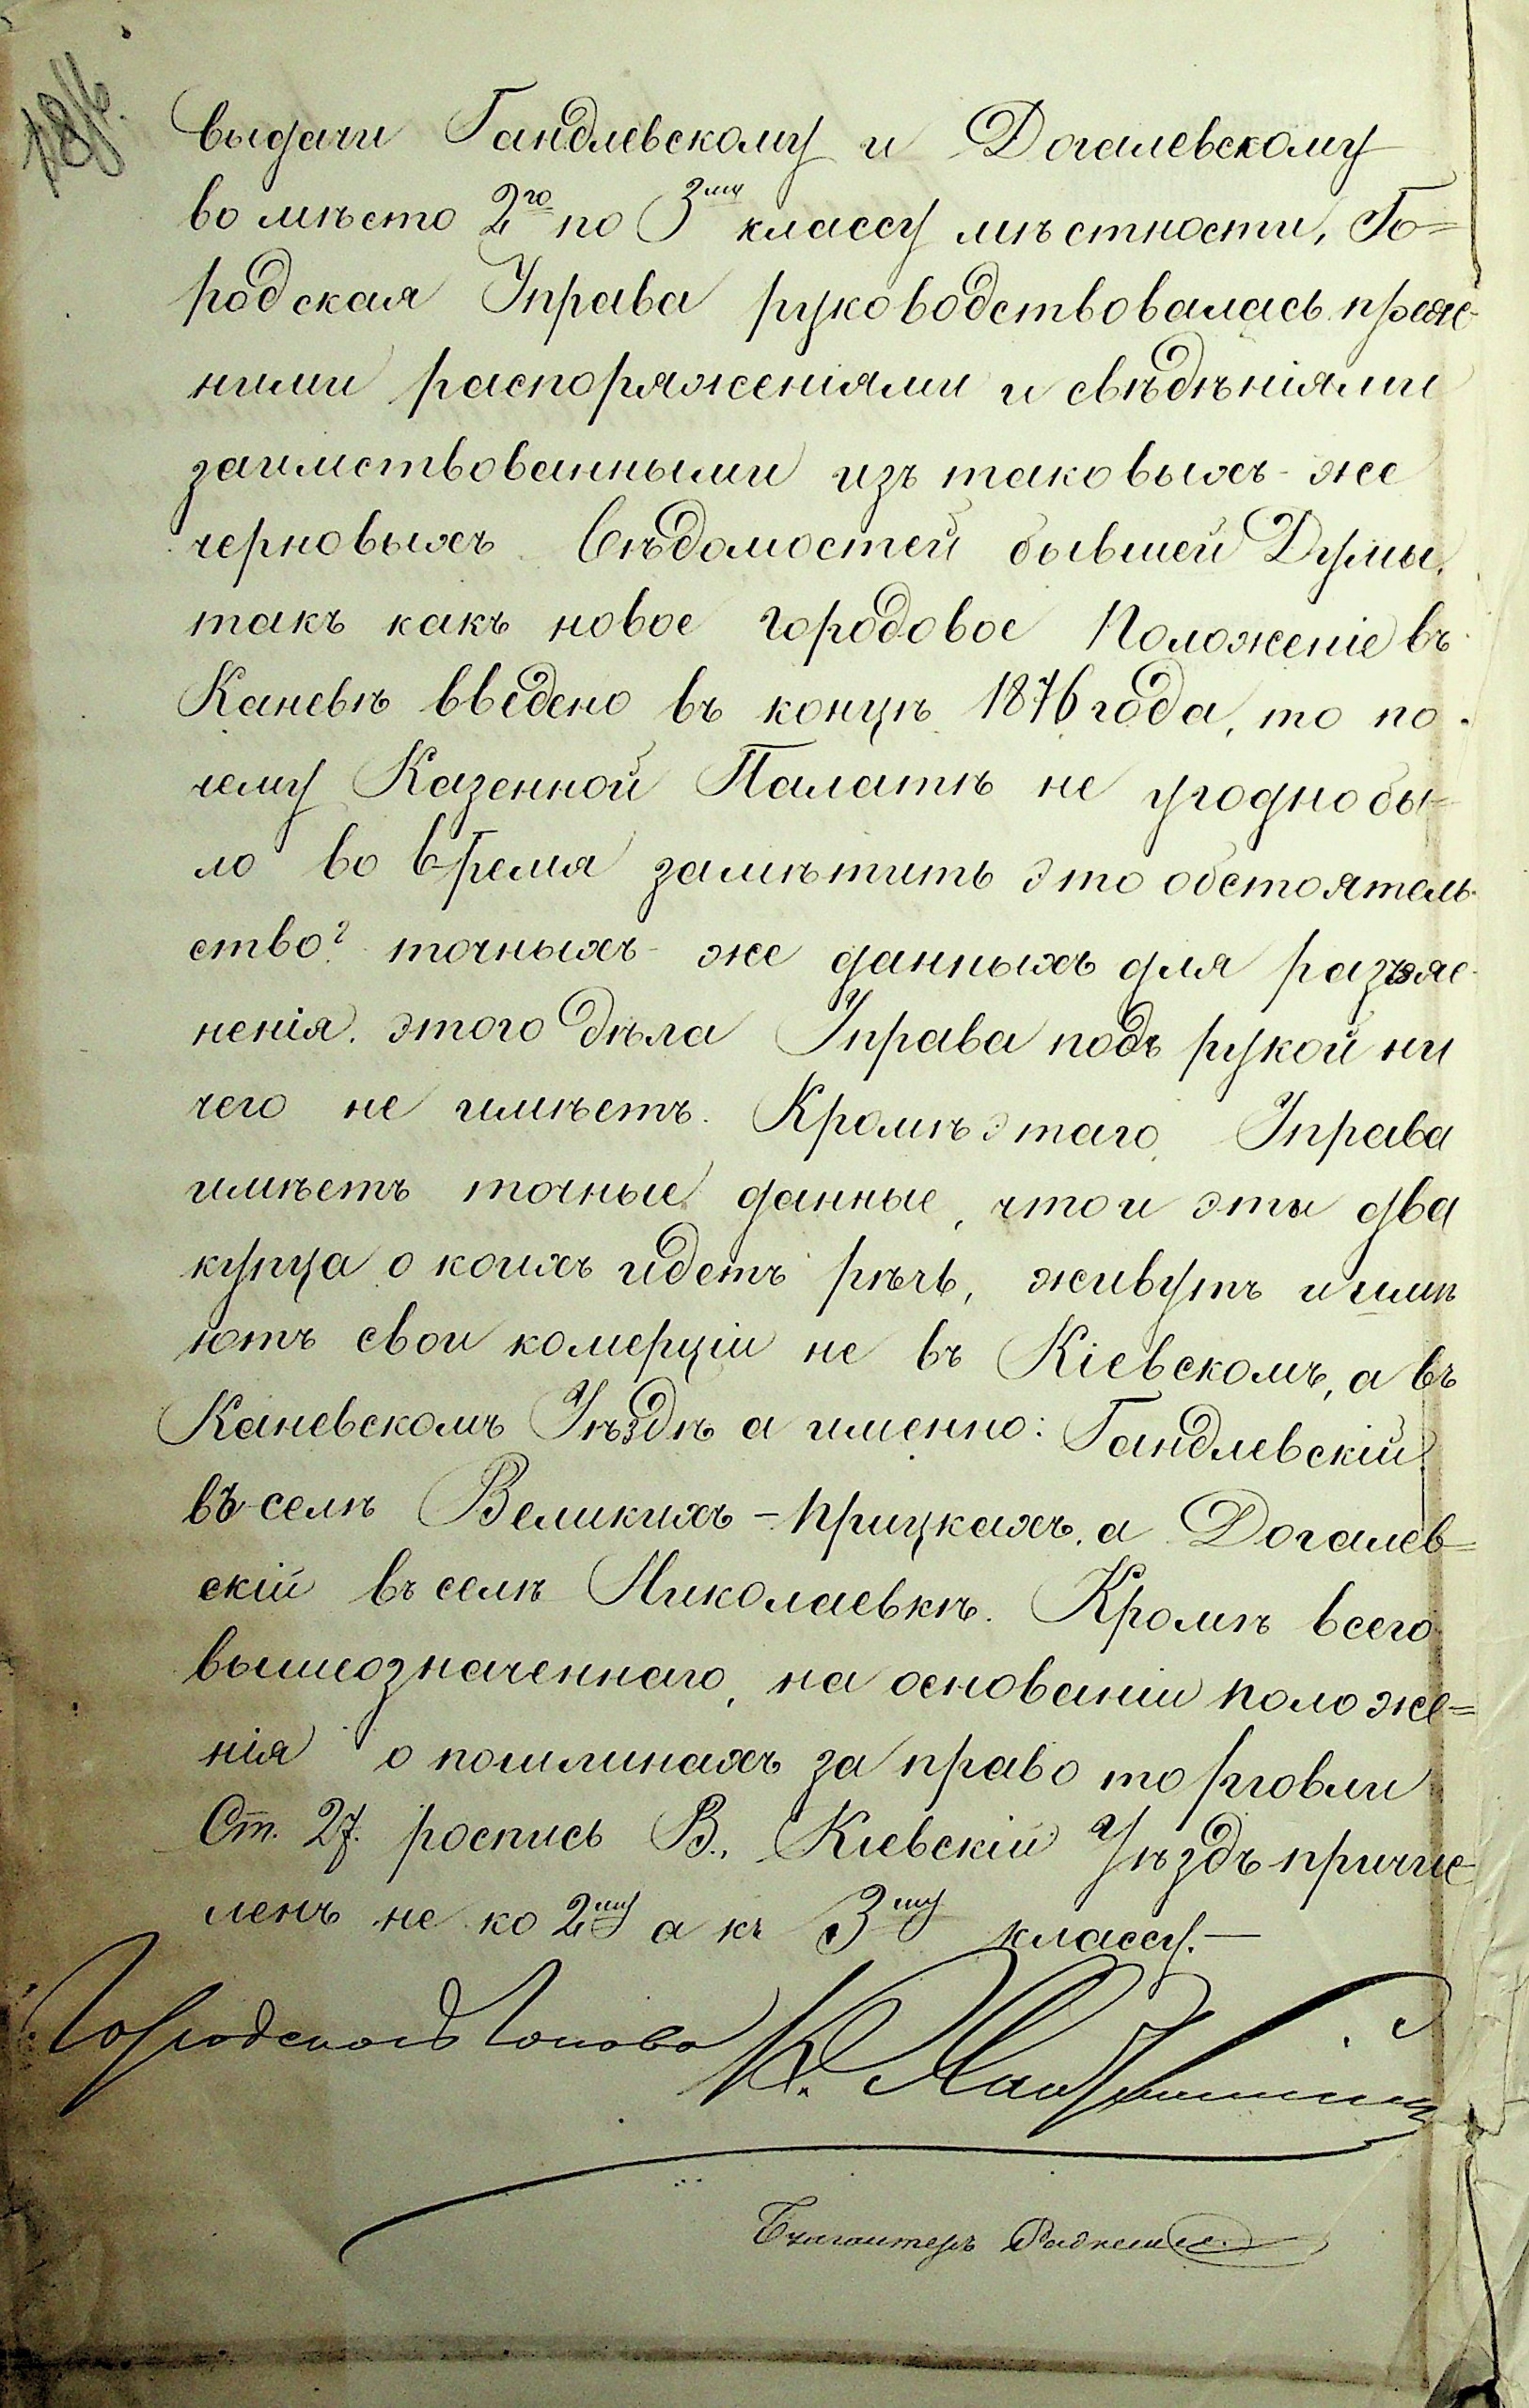 выдачи Гандлевскому и Догалевскому
во мѣсто 2го по 3му классу мѣстности, Го=
родская Управа руководствовалась преж-
ними распоряженіями и свѣдѣніями
заимствованными изъ таковыхъ-же
черновыхъ Вѣдомостей бывшей Думы,
такъ какъ новое Городовое Положеніе въ
Каневѣ введено въ концѣ 1876 года, то по-
чему Казенной Палатѣ не угодно бы=
ло во время замѣтить это обстоятель-
ство? точныхъ-же данныхъ для разъяс-
ненія этого дѣла Управа подъ рукой ни
чего не имѣетъ. Кромѣ этаго, Управа
имѣетъ точные данные, что и эти два
купца о коихъ идетъ рѣчь, живутъ и имѣ
ютъ свои комерціи не въ Кіевскомъ, а въ
Каневскомъ Уѣздѣ а именно: Гандлевскій
въ селѣ Великихъ-Прицкахъ, а Догалев=
скій въ селѣ Николаевкѣ. Кромѣ всего
вышеозначеннаго, на основаніи положе=
нія о пошлинахъ за право торговли
Ст. 27. роспись В., Кіевскій Уѣздъ причис-
ленъ не ко 2му а къ 3му классу.—
Городской Голова К.
Бухгалтеръ